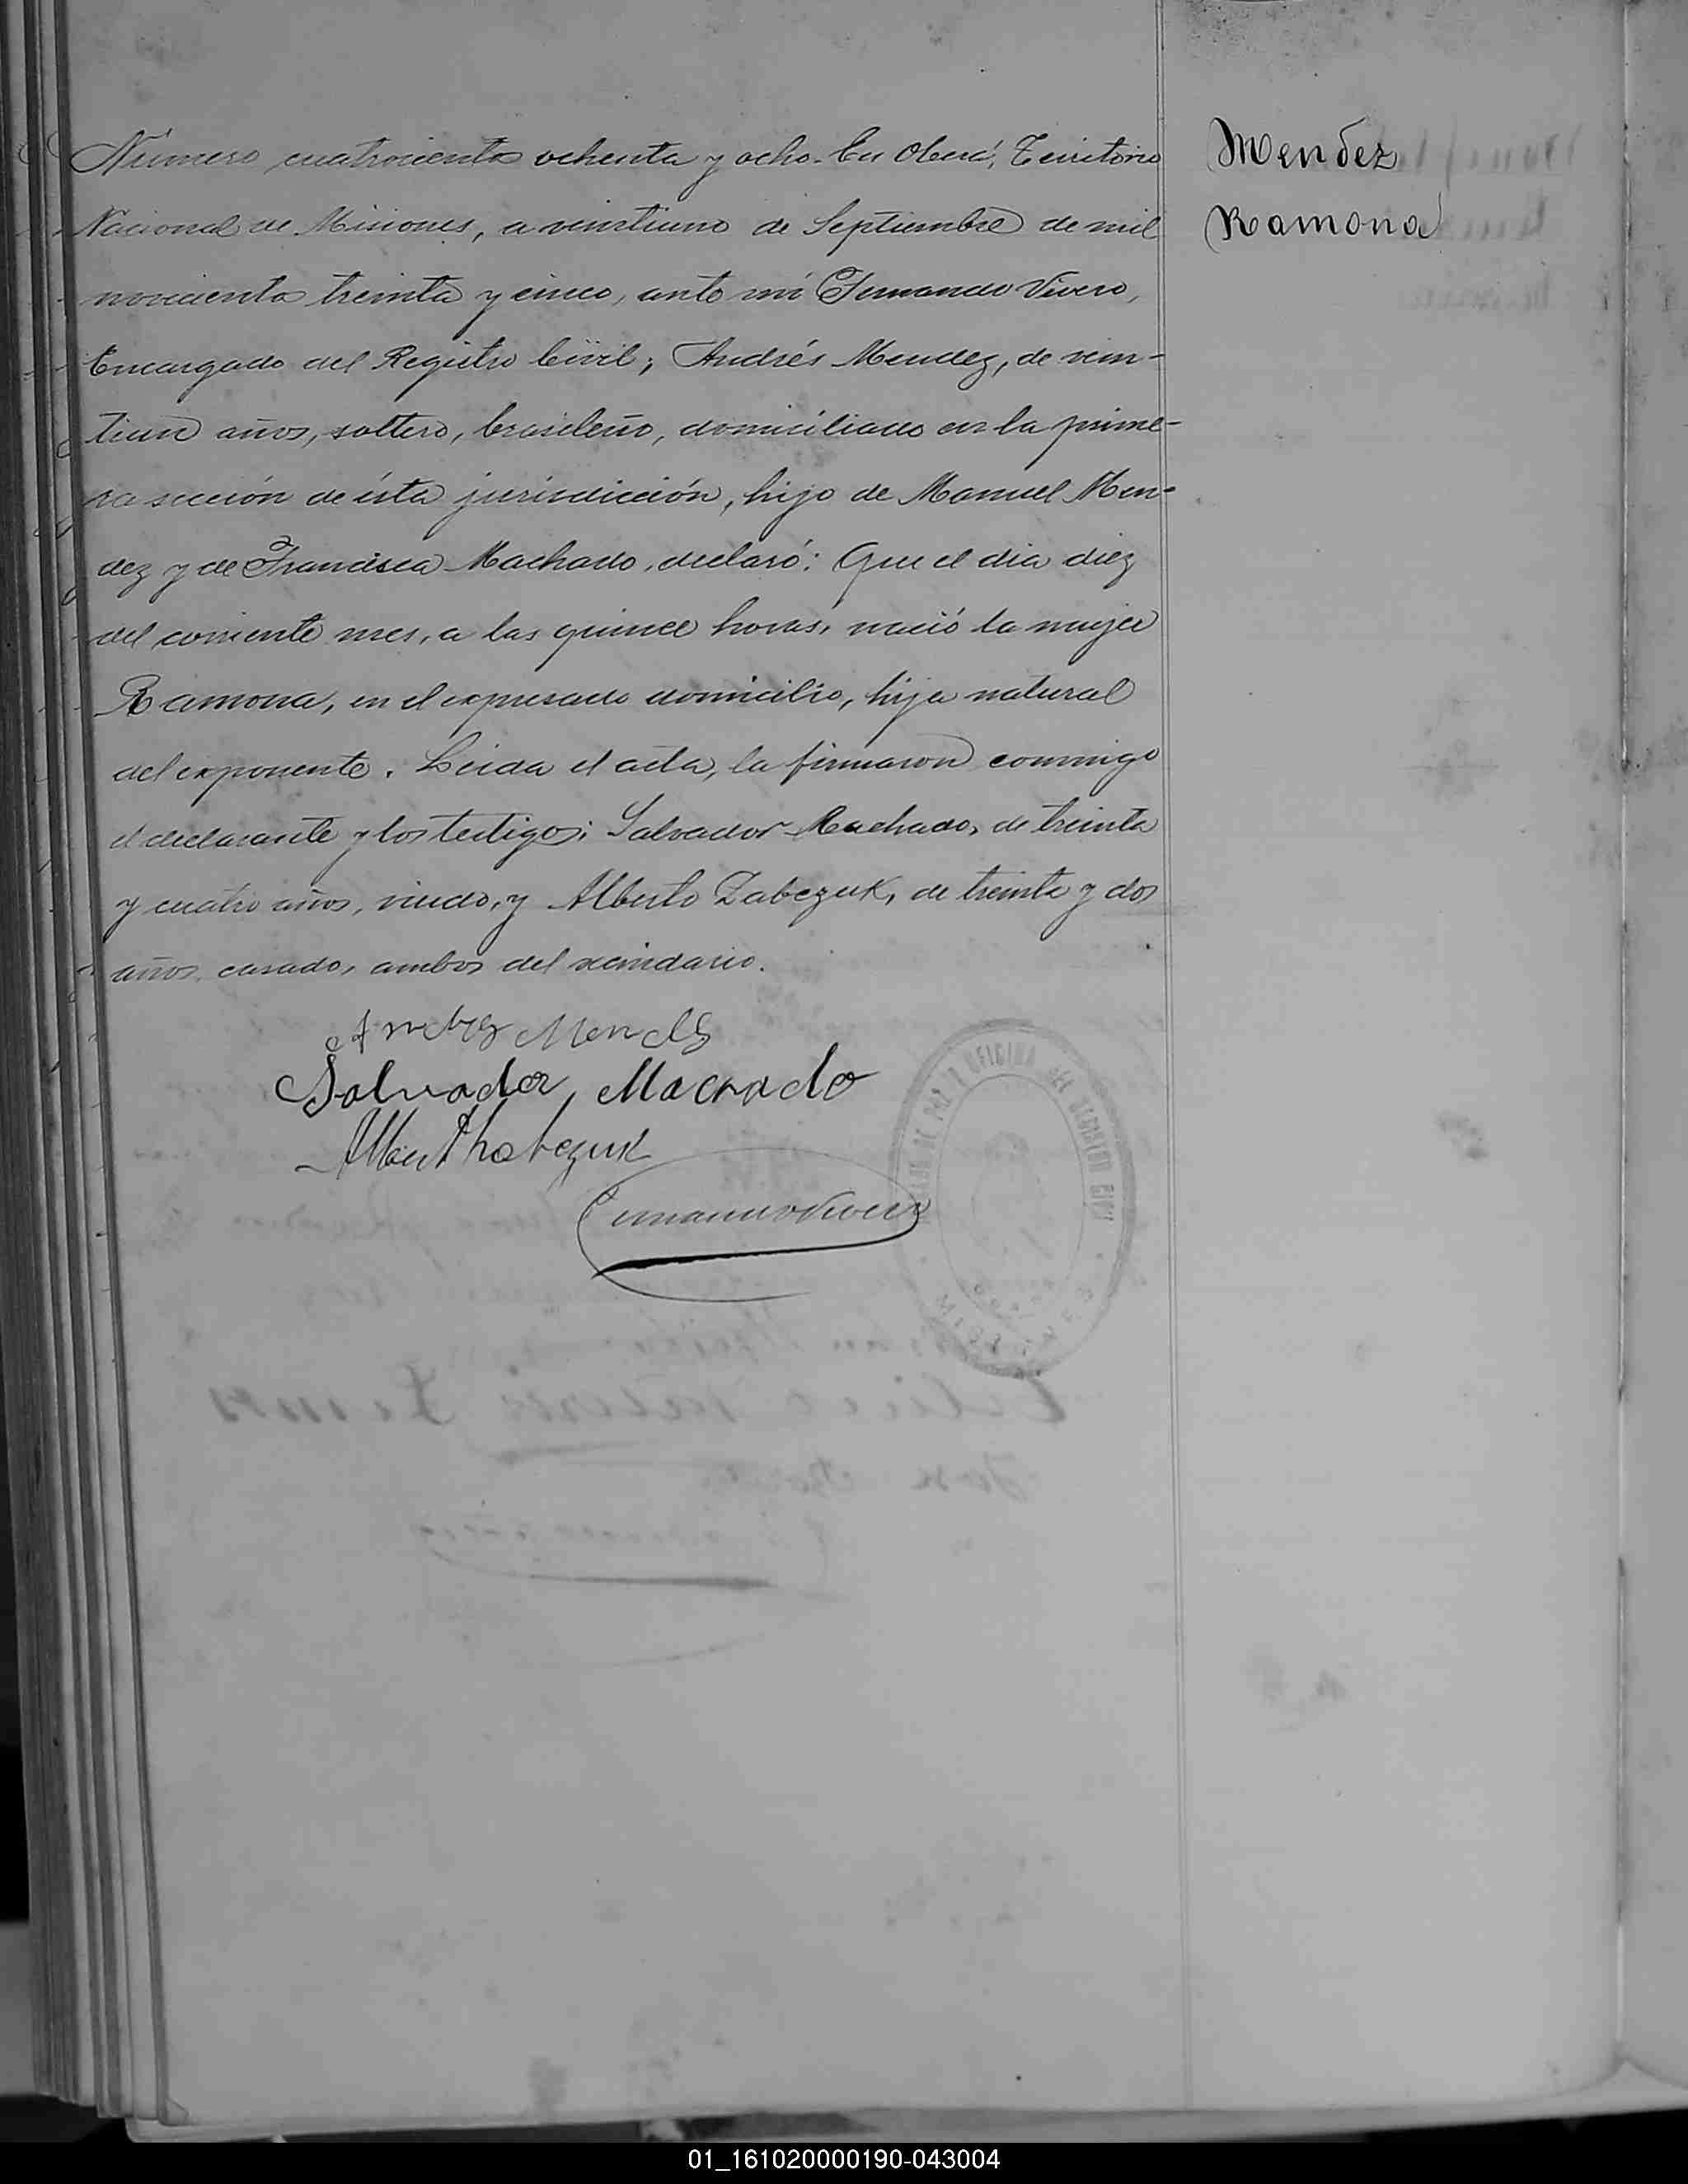 Número cuatrocientos ochenta y ocho. En Oberá, Territorio
Nacional de Misiones, a veintiuno de Septiembre de mil
novecientos treinta y cinco, ante mí Fernando Vivero,
Encargado del Registro Civil; Andrés Mendez, de vein-
tiun años, soltero, brasileño, domiciliado en la prime-
ra sección de ésta jurisdicción, hijo de Manuel Men-
dez y de Francisca Machado, declaró: Que el dia diez
del corriente mes, a las quince horas, nació la mujer
Ramona, en el expresado domicilio, hija natural
del exponente. Leida el acta, la firmaron conmigo
el declarante y los testigos: Salvador Machado, de treinta
y cuatro años, viudo, y Alberto Zabczuk, de treinta y dos
años, casado, ambos del vecindario.
Mendez
Ramona
Salvador Macrado
OFICINA DEL REGISTRO CIVIL
01_161020000190-043004